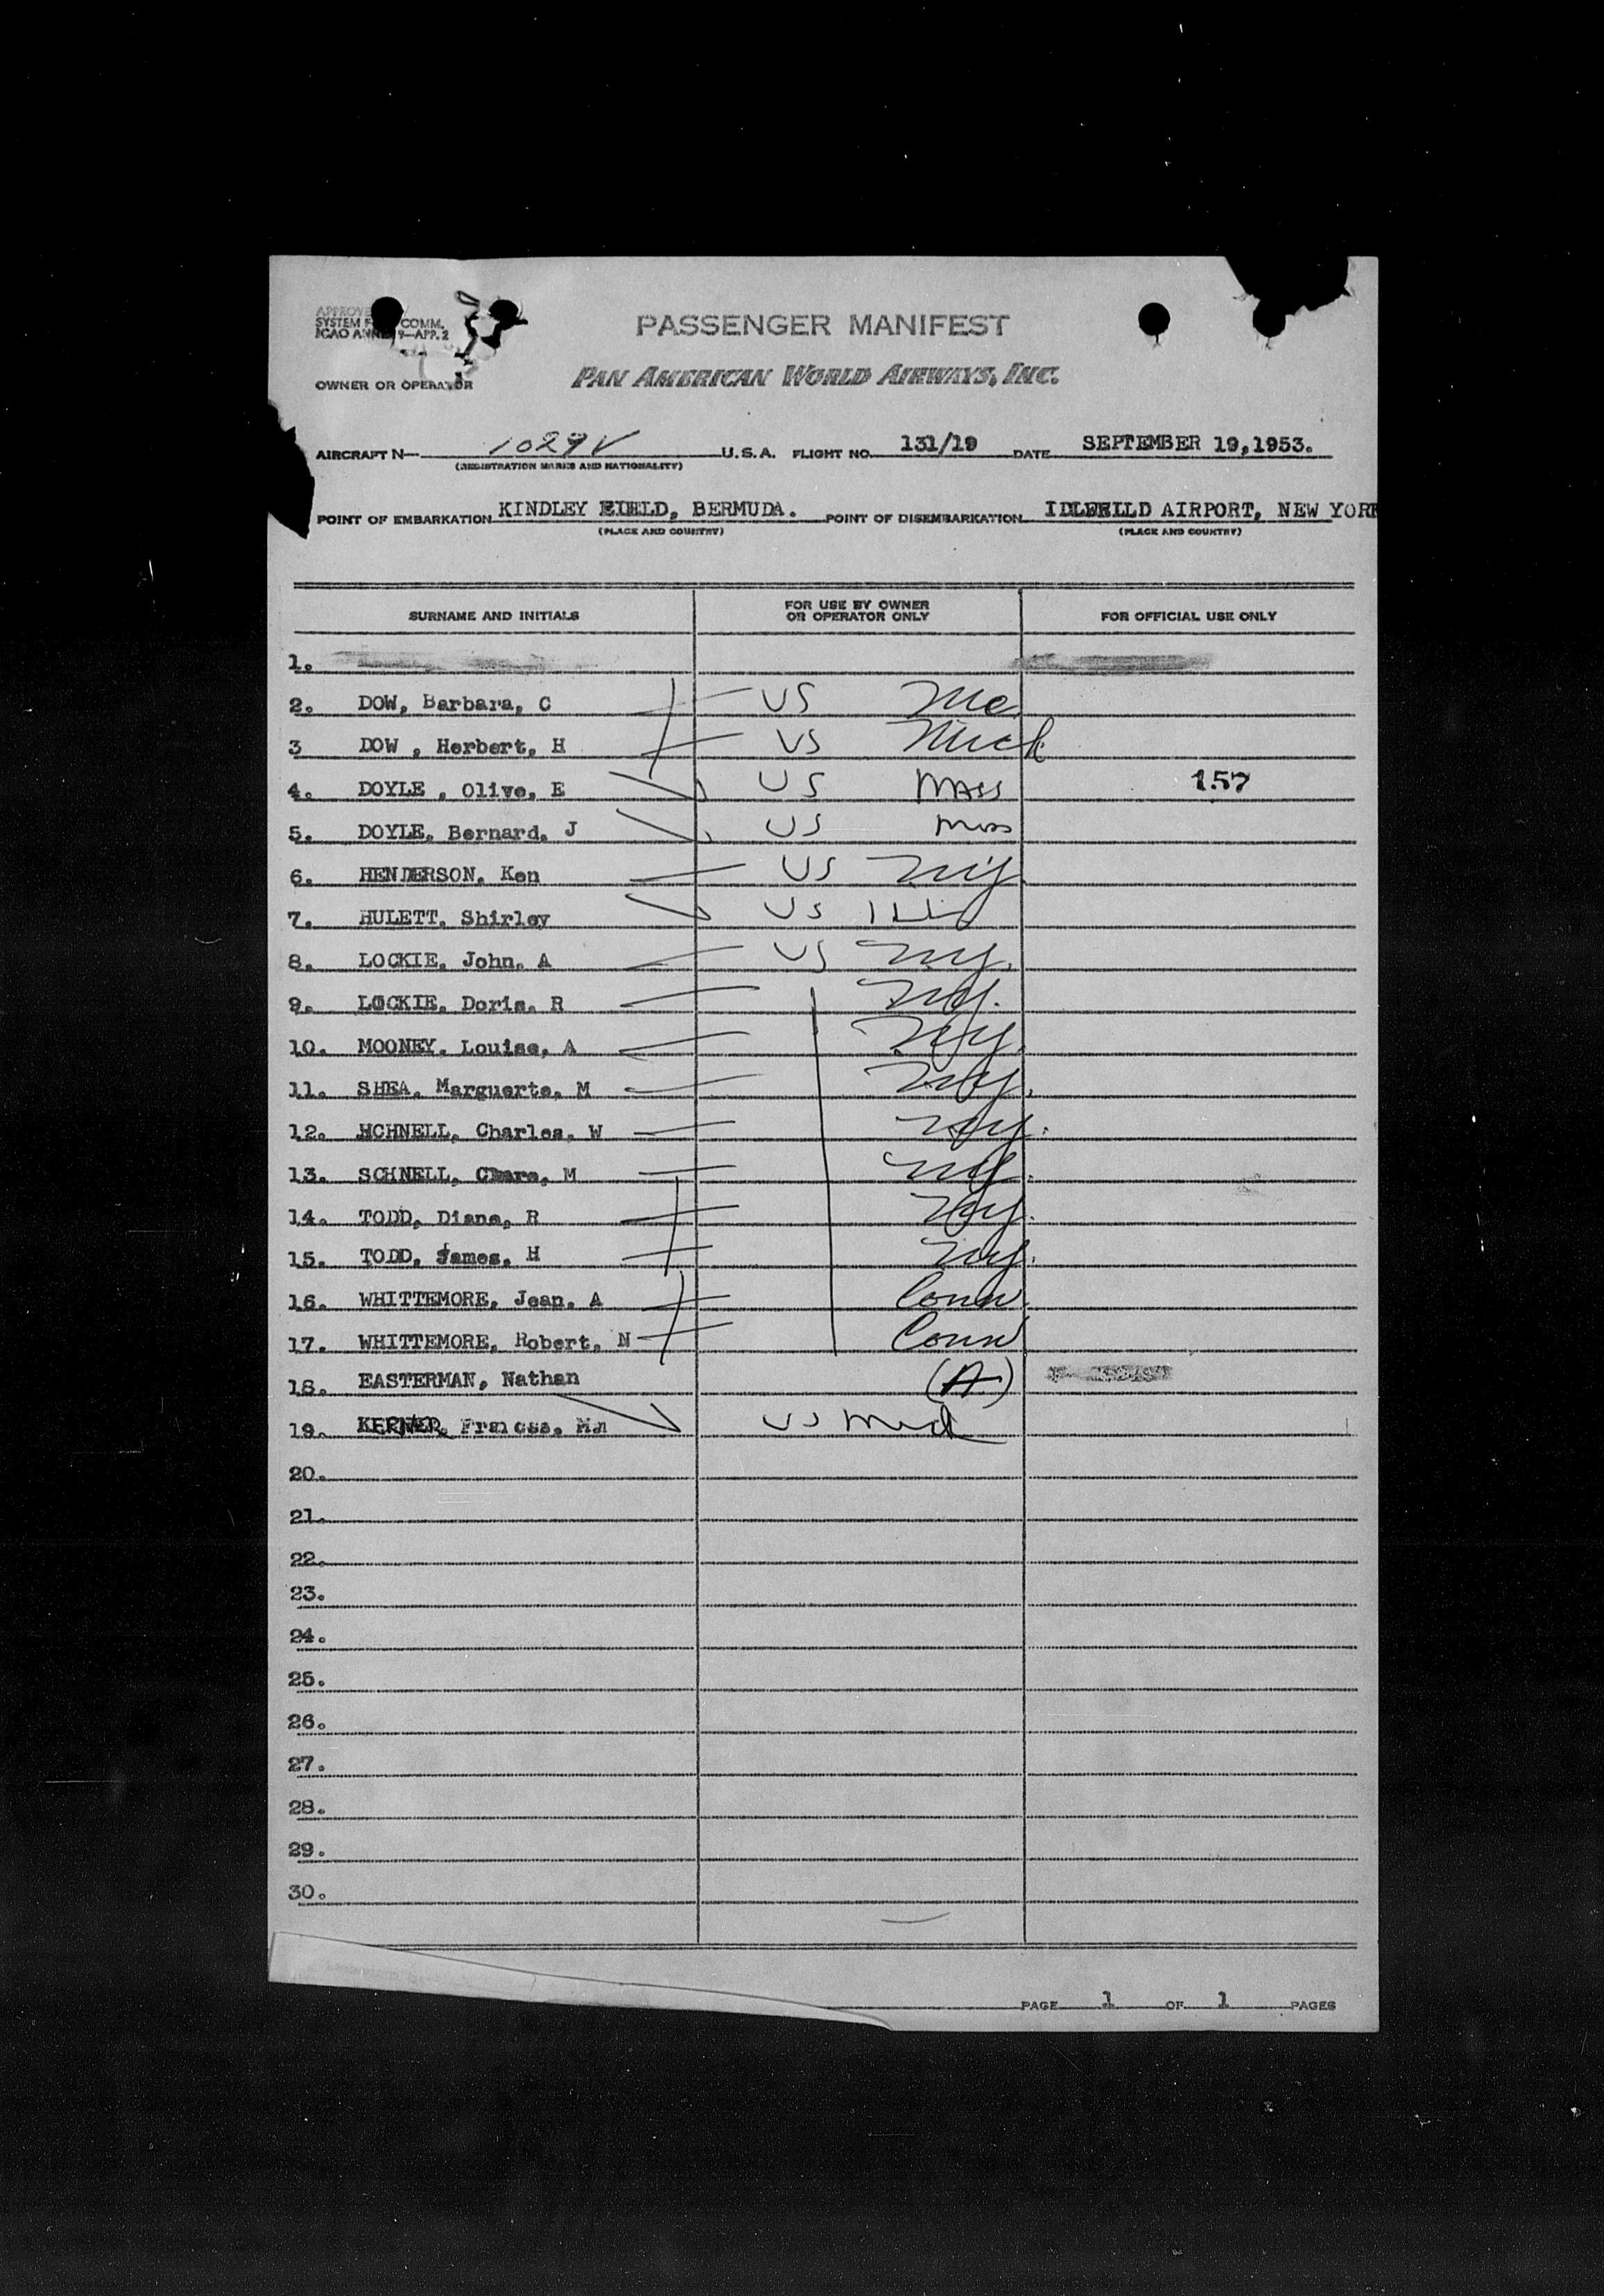 PASSENGER MANIFEST
SYSTEM F COMM.
ICAO ANNE 9—APP. 2
PAN AMERICAN WORLD AIRWAYS, INC.
OWNER OR OPERATOR
AIRCRAFT N— 1029V U.S.A. FLIGHT NO. 131/19 DATE SEPTEMBER 19,1953.
(REGISTRATION MARKS AND NATIONALITY)
POINT OF EMBARKATION KINDLEY FIELD, BERMUDA. POINT OF DISEMBARKATION IDLEEILD AIRPORT, NEW YORK
(PLACE AND COUNTRY) (PLACE AND COUNTRY)
SURNAME AND INITIALS FOR USE BY OWNER OR OPERATOR ONLY FOR OFFICIAL USE ONLY
1.
2. DOW, Barbara, C US Me
3 DOW , Herbert, H US Mich
4. DOYLE , Olive, E US Mass 157
5. DOYLE, Bernard, J US Mass
6. HENDERSON, Ken US NY
7. HULETT, Shirley US ILL
8. LOCKIE, John, A US NY.
9. LOCKIE, Doris, R NY.
10. MOONEY, Louise, A NY.
11. SHEA, Marguerte, M NY.
12. HCHNELL, Charles, W NY.
13. SCHNELL, Clara, M NY.
14. TODD, Diana, R NY.
15. TODD, James, H NY.
16. WHITTEMORE, Jean, A Conn
17. WHITTEMORE, Robert, N Conn
18. EASTERMAN, Nathan (A)
19. KERNER, Frances, Mn US Md
20.
21.
22.
23.
24.
25.
26.
27.
28.
29.
30.
PAGE 1 OF 1 PAGES